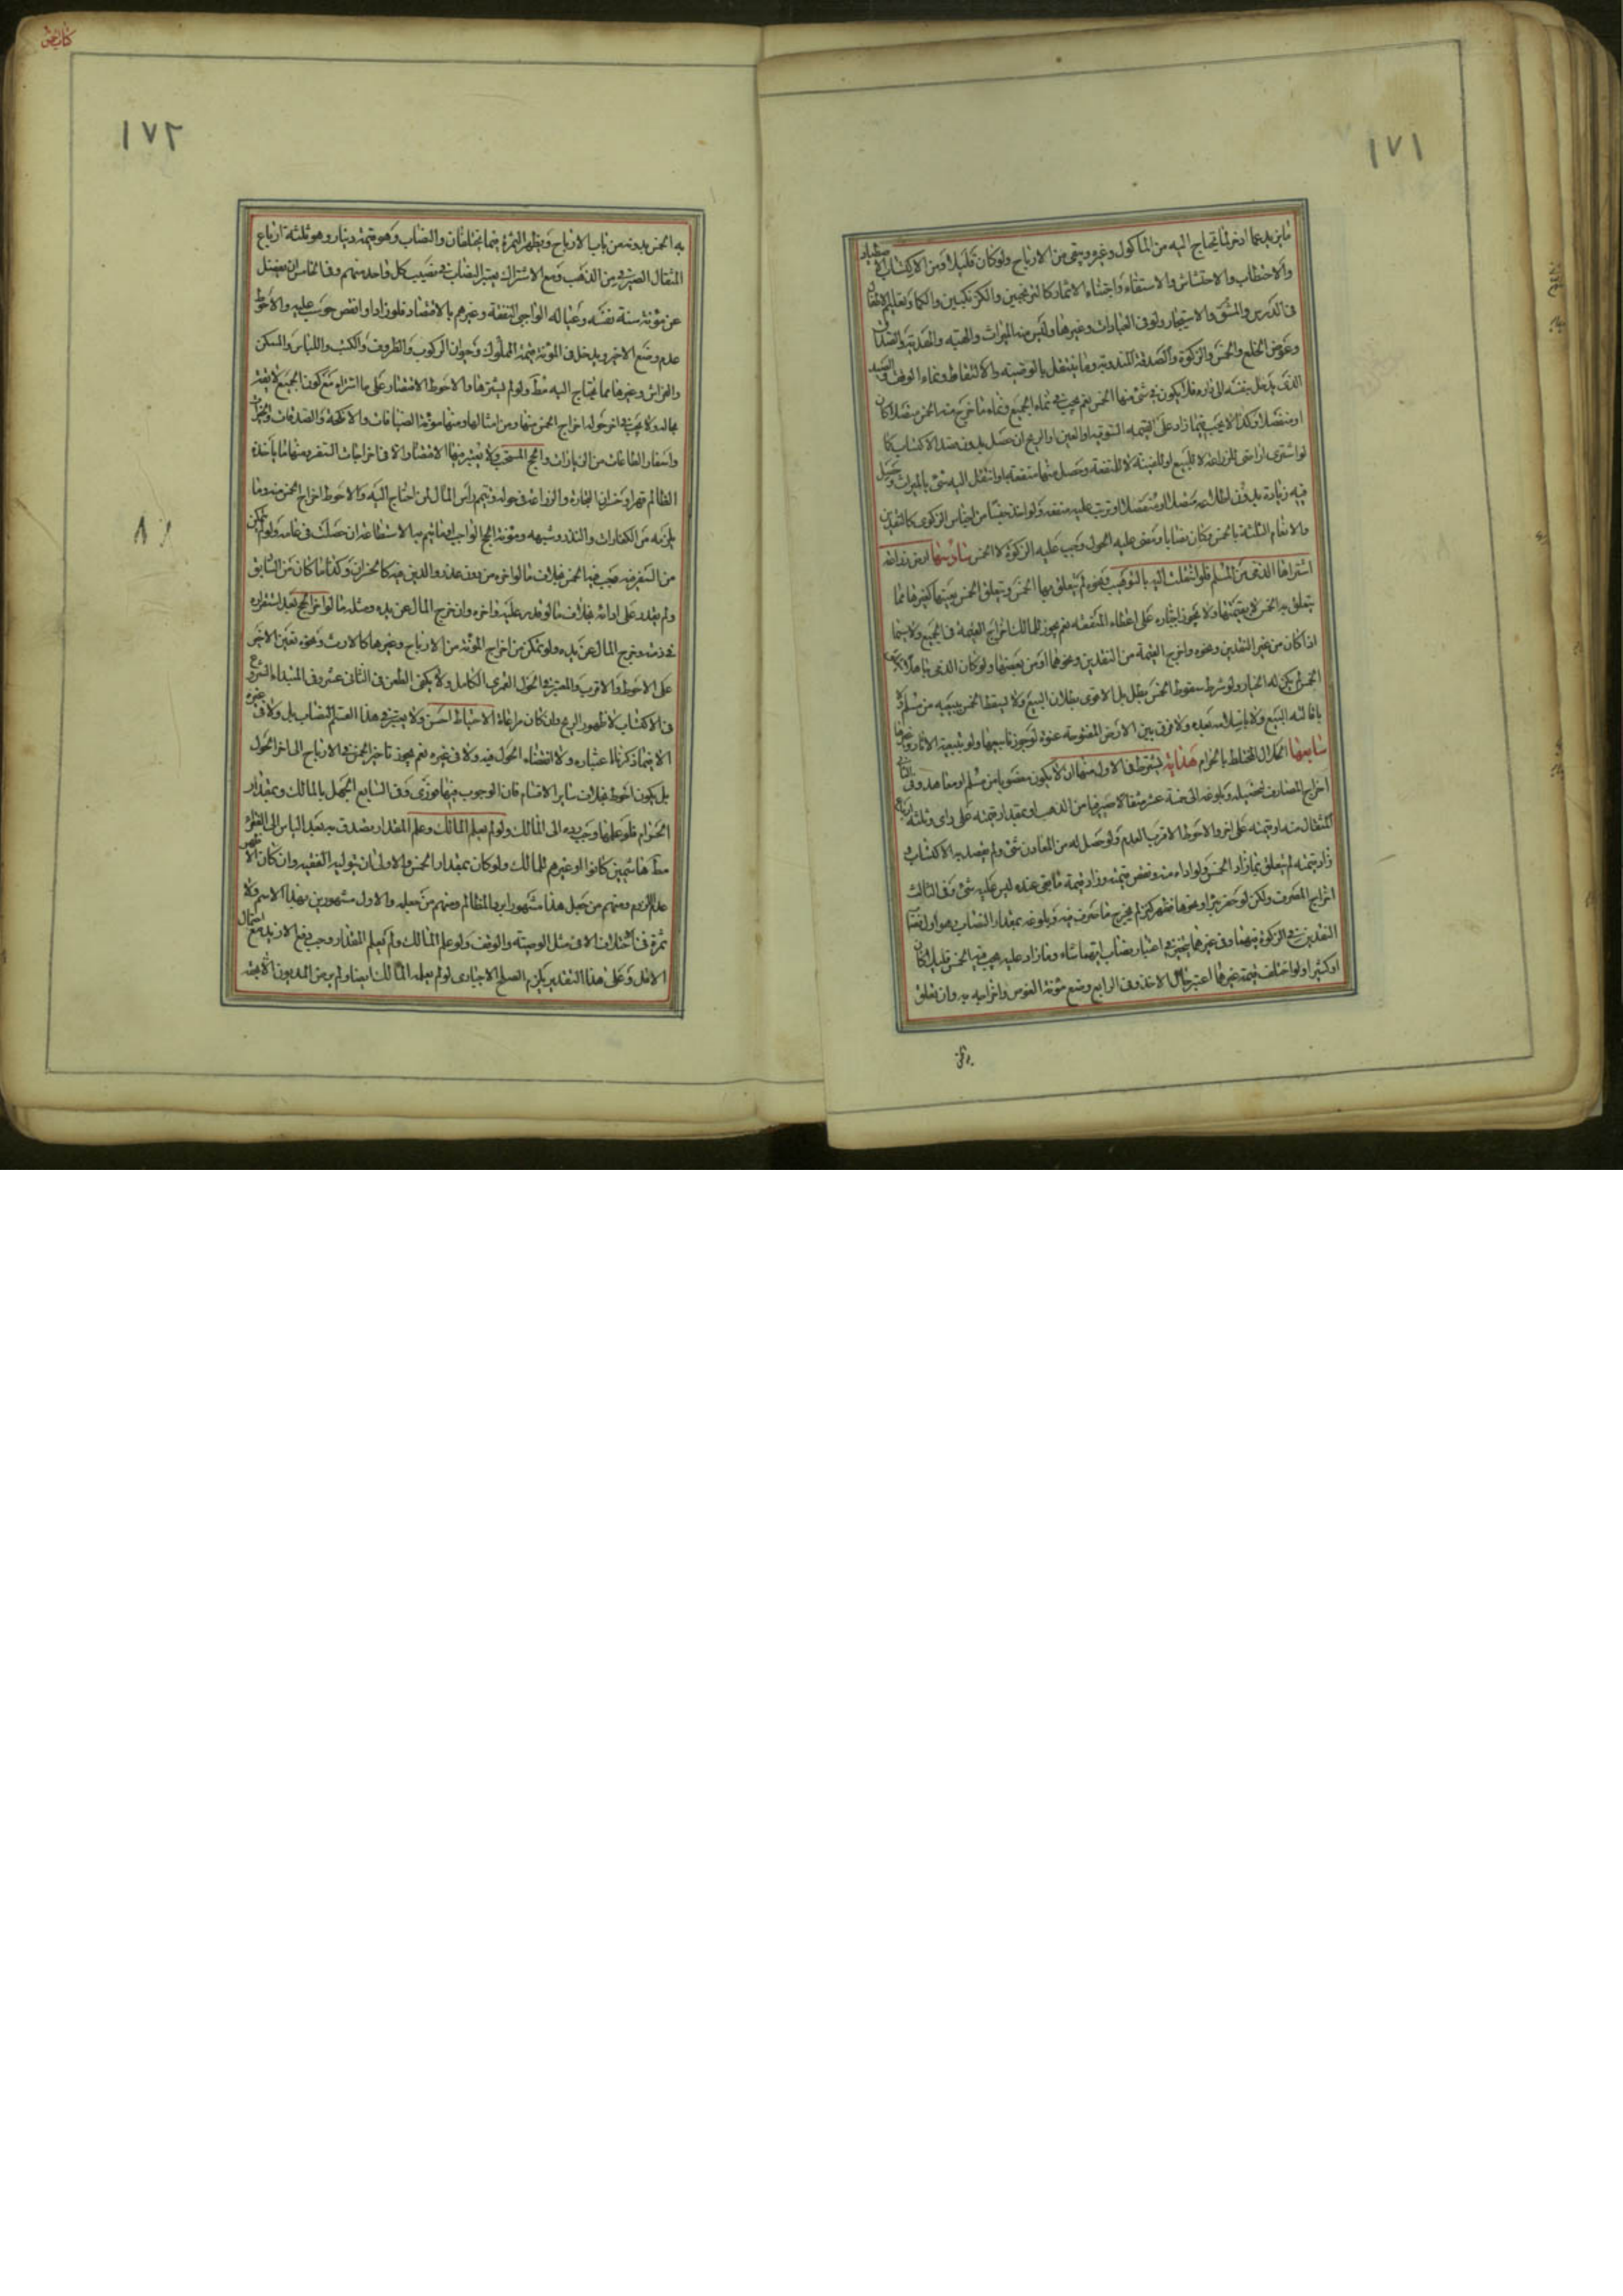 ١٧١
ما يزيد عما ادخر لما يحتاج اليه من الماكول وغيره ويبقى من الارباح ولو كان قليلا ومن الاكتساب
والاحتطاب والاحتشاش والاستقاء واجتناء الاثمار كالترنجبين والكزنكبين والكما وتعليم
فى الدرس والمشق والاستيجار ولو فى العبادات وغيرها وليس منه الميراث والهبة والهدية والصداق
وعوض الخلع والخمس والزكوة والصدقة المندوبة وما ينتقل بالوصية والالتقاط ونماء الوقف
الذى يدخل بنفسه الى داره فلا يكون فى شئ منها الخمس نعم يجب فى نماء الجميع ونماء ما خرج منه الخمس متصلا كان
او منفصلا وكذا لا يجب فيما زاد على القيمة السوقية او العين او الربح ان حصل بدون قصد الاكتساب كما
لو اشترى اراضى للزراعة لا للبيع او للعينة لا للمنفعة وحصل منها منفعة او انتقل اليه شئ بالميراث وحصل
فيه زيادة بدون اطلاعه متصلا او منفصلا او ترتب عليه منفعة ولو اخذ جنسا من اجناس الزكوى كالنقدين
والانعام الثلثة بالخمس وكان نصابا ومضى عليه الحول وجب عليه الزكوة لا الخمس سادسها ارض زراعة
اشتراها الذمى من المسلم فلو انتقلت اليه بالتوهيب ونحوه لم يتعلق بها الخمس ويتعلق الخمس بعينها كغيرها مما
يتعلق به الخمس لا بقيمتها ولا يجوز اجباره على اعطاء المنفعة نعم يجوز للمالك اخراج القيمة فى الجميع ولا سيما
اذا كان من غير النقدين ونحوه واخرج القيمة من النقدين ونحوها او من بعضها ولو كان الذمى جاهلا
الخمس لم يكن له الخيار ولو شرط سقوط الخمس بطل بل الاقوى بطلان البيع ولا يسقط الخمس ببيعه من مسلم ولا
باقالته البيع ولا باسلامه بعده ولا فرق بين الارض المفتوحة عنوة لو جوزنا بيعها ولو بتبعية الاثار وغيرها
سابعها الحلال المختلط بالحرام هداية يشترط فى الاول منها ان لا يكون مغصوبا من مسلم او معاهد وفى الثانى
اخراج المصارف لتحصيله وبلوغه الى خمسة عشر مثقالا صيرفيا من الذهب او بمقدار قيمته على راى وثلثة ارباع
المثقال منه او قيمته على اخر والاحوط الاقرب العدم ولو حصل له من المعادن شئ ولم يقصد به الاكتساب
زاد قيمته لم يتعلق بما زاد الخمس ولو اداه منه ونقص قيمته وزاد قيمة ما بقى عنده ليس عليه شئ وفى الثالث
اخراج المصرف ولكن لو حفر بئرا ونحوها فظهر كنز لم يخرج ما صرف فيه وبلوغه بمقدار النصاب وهو اول نصاب
النقدين فى الزكوة فيهما وفى غيرهما يتخير فى اعتبار نصاب ايهما شاء وما زاد عليه يجب فيه الخمس قليلا كان
او كثيرا ولو اختلف قيمة غيرها اعتبر حال الاخذ وفى الرابع وضع مؤنة الغوص واخراجه به وان تعلق
١٧٢
به الخمس بدونه من باب الارباح ويظهر الثمرة فيما يختلفان والنصاب وهو قيمة دينار وهو ثلثة ارباع
المثقال الصيرفى من الذهب ومع الاشتراك يعتبر النصاب فى نصيب كل واحد منهم وفى الخامس ان يفضل
عن مؤنة سنة نفسه وعياله الواجبى النفقة وغيرهم بالاقتصاد فلو زاد او انقص حوسب عليه والاحوط
عدم وضع الاخير ويدخل فى المؤنة قيمة المملوك وحيوان الركوب والظروف والكتب واللباس والمسكن
والفراش وغيرها مما يحتاج اليه مط ولو لم يشترها والاحوط الاقتصار على ما اشتراه مع كون الجميع لايقة
بحاله ولا يجب فى اخر حوله اخراج الخمس منها ومن امثالها ومنها مؤنة الضيافات والانكحة والصدقات
واسفار الطاعات من الزيارات والحج المستحب ولا يعتبر فيها الاقتصاد ولا فى اخراجات السفر ومنها ما ياخذه
الظالم قهرا وخسران التجارة والزراعة فى حوله وتتميم راس المال لمن احتاج اليه والاحوط اخراج الخمس منه وما
يلزمه من الكفارات والنذر وشبهه ومؤنة الحج الواجب وما يتم به الاستطاعة ان حصلت فى عامه ولو لم يتمكن
من السفر فيه يجب فيها الخمس بخلاف ما لو اخره من دون عذر والدين فيه كالخسران وكذا ما كان من السابق
ولم يقدر على ادائه بخلاف ما لو قدر عليه واخره وان خرج المال عن يده ومثله ما لو اخر الحج بعد استقراره
فى ذمته وخرج المال عن يده ولو تمكن من اخراج المؤنة من الارباح وغيرها كالارث ونحوه تعين الاخير
على الاحوط والاقرب والمعتبر فى الحول القمرى الكامل ولا يكفى الطعن فى الثانى عشر وفى المبتداء الشروع
فى الاكتساب لا ظهور الربح وان كان مراعاة الاحتياط احسن ولا يعتبر فى هذا القسم النصاب بل ولا فى غيره
الا فيما ذكرنا اعتباره ولا انقضاء الحول فيه ولا فى غيره نعم يجوز تاخير الخمس فى الارباح الى اخر الحول
بل يكون احوط بخلاف سائر الاقسام فان الوجوب فيها فورى وفى السابع الجهل بالمالك وبمقدار
الحرام فلو علمهما وجب رده الى المالك ولو لم يعلم المالك وعلم المقدار يصدق به بعد الياس الى الفقراء
مط هاشميين كانوا او غيرهم للمالك ولو كان بمقدار الخمس والاولى ان يتوليه الفقيه وان كان الاظهر
عدم اللزوم ومنهم من جعل هذا مشهورا برد المظالم ومنهم من جعله والاول مشهورين بهذا الاسم ولا
ثمرة فى اختلاف الا فى مثل الوصية والوقف ولو علم المالك ولم يعلم المقدار وجب دفع الازيد مع احتمال
الاقل وعلى هذا التقدير يلزم الصلح الاجبارى لو لم يعلم المالك ايضا ولم يرض المديون الا بعضه